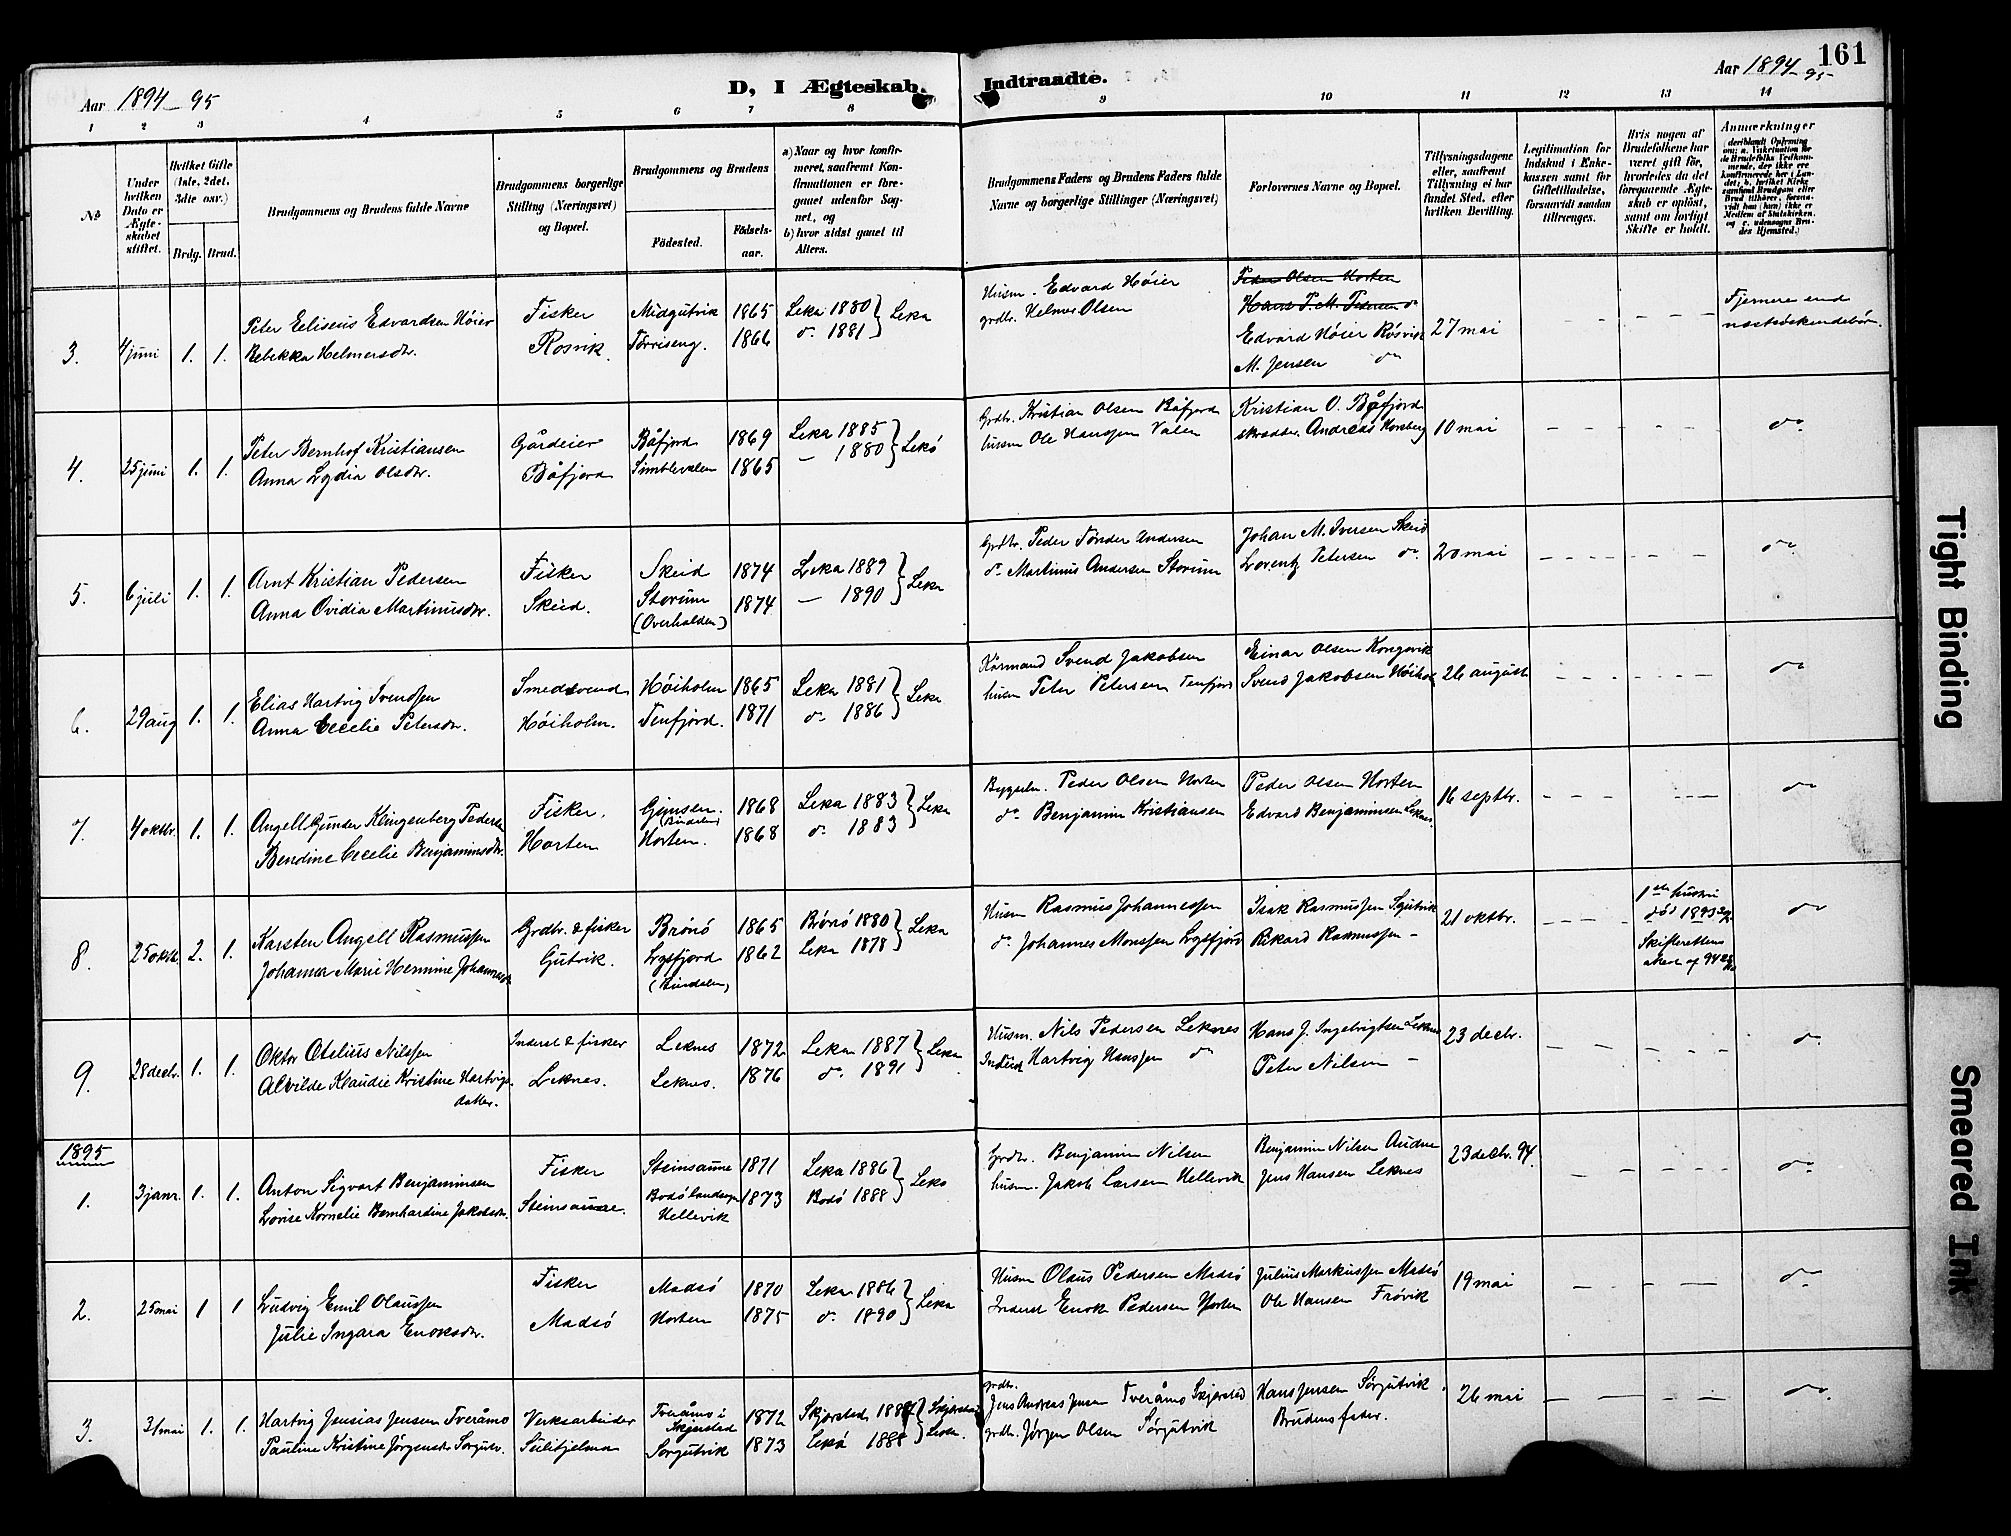 161
Aar 1894-95
D, I Ægteskab Indtraadte.
Aar 1894-95
1 2 3 4 5 6 7 8 9 10 11 12 13 14
No
Under hvilken Dato er Ægteskabet stiftet.
Hvilket Gifte (1ste, 2det, 3die osv.)
Brdg. Brud.
Brudgommens og Brudens fulde Navne
Brudgommens borgerlige Stilling (Næringsvei) og Bopæl.
Brudgommens og Brudens
Födested.
Födselsaar.
a) Naar og hvor konfirmeret, saafremt Konfirmationen er foregaaet udenfor Sognet, og
b) hvor sidst gaaet til Alters.
Brudgommens Faders og Brudens Faders fulde Navne og borgerlige Stillinger (Næringsvei)
Forlovernes Navne og Bopæl.
Tillysningsdagene eller, saafremt Tillysning ei har fundet Sted, efter hvilken Bevilling.
Legitimation for Indskud i Enkekassen samt for Giftetilladelse, forsaavidt saadan tiltrænges.
Hvis nogen af Brudefolkene har været gift för, hvorledes da det foregaaende Ægteskab er oplöst, samt om lovligt Skifte er holdt.
Anmærkninger
3. 4 juni 1. 1.
Peter Eeliseus Edvardsen Höier
Rebekka Helmersdtr.
Fisker
Rosvik.
Midgutvik 1865
Törriseng. 1866
Leka 1880
do 1881 } Leka
Husm. Edvard Höier
grdbr. Helmer Olsen
Peder Olsen Horten
Hans P. M. Pedersen do
Edvard Höier Rösvik
M. Jensen do
27 mai
Fjernere end
næstsöskendebörn.
4. 25 juni 1. 1.
Peter Bernhof Kristiansen
Anna Lydia Olsdtr.
Gårdeier
Båfjord
Båfjord 1869
Simblevalen 1865
Leka 1885
— 1880 } Lekö
Grdbr. Kristian Olsen Båfjord
husm Ole Hanssen Valen
Kristian O. Båfjord
skrædder. Andreas Horsberg
10 mai
do
5. 6 juli 1. 1.
Arnt Kristian Pedersen
Anna Ovidia Martinusdtr.
Fisker
Skeid.
Skeid 1874
Storum 1874
(Overhalden)
Leka 1889
— 1890 } Leka
Grdbr. Peder Tönder Andersen
do Martinus Andersen Storum
Johan M. Iversen Skeid
Lorentz Petersen do
20 mai
do
6. 29 aug 1. 1.
Elias Hartvig Svendsen
Anna Cecelie Petersdtr.
Smedsvend
Höiholm.
Höiholm 1865
Tenfjord. 1871
Leka 1881
do 1886 } Leka
Kårmand Svend Jakobsen
husm Peter Petersen Tenfjord
Einar Olsen Kongsvik
Svend Jakobsen Höihol
26 august
do
7. 4 oktbr. 1. 1.
Angell Gunder Klingenberg Pedersen
Bendine Cecelie Benjaminsdtr.
Fisker.
Horten
Gimsten. 1868
(Bindalen)
Horten. 1868
Leka 1883
do 1883 } Leka
Bygseln. Peder Olsen Horten
do Benjamin Kristiansen
Peder Olsen Horten
Edvard Benjaminsen Leknes.
16 septbr.
do
8. 25 oktb. 2. 1.
Karsten Angell Rasmussen
Johanna Marie Hermine Johannesdtr
Grdbr. & fisker
Gutvik.
Brönö 1865
Lysfjord 1862
(Bindalen)
Brönö 1880
Leka 1878 } Leka
Husm Rasmus Johannessen
do Johannes Monssen Lysfjord
Isak Rasmussen Sgutvik
Rikard Rasmussen -
21 oktbr.
1ste hustru
död 1893
Skifterettens
attest af 94
do
9. 28 decbr. 1. 1.
Oktor Otelius Nilssen
Alvilde Klaudie Kristine Hartvigs
datter.
Inderst & fisker
Leknes.
Leknes 1872
Leknes. 1876
Leka 1887
do 1891 } Leka
Husm. Nils Pedersen Leknes
Inderst Hartvig Hanssen do
Hans J. Ingebrigtsen Leknes
Peter Nilsen -
23 decbr.
do
1895
1. 3 janr. 1. 1.
Anton Sigvart Benjaminsen
Lovise Kornelie Bernhardine Jakobsdtr.
Fisker
Steinsaune.
Steinsaune 1871
Bodö landsogn 1873
Hellevik
Leka 1886
Bodö 1888 } Leka
Grdbr. Benjamin Nilsen
husm. Jakob Larsen Hellevik
Benjamin Nilsen Audne
Jens Hansen Leknes
23 decbr. 94.
do
2. 25 mai 1 1
Ludvig Emil Olaussen
Julie Ingara Enoksdtr.
Fisker
Madsö
Madsö 1870
Horten 1875
Leka 1886
do 1890 } Leka
Husm Olaus Pedersen Madsö
Inderst Enok Pedersen Horten
Julius Markussen Madsö
Ole Hansen Frövik
19 mai
do
3. 31 mai 1. 1.
Hartvig Jensias Jensen Tveråmo
Pauline Kristine Jörgensdtr Sorgutv.
Verksarbeider
Sulitjelma
Tveråmo i 1872
Skjerstad
Sorgutvik 1873
Skjerstad 1887
Lekö 1888 } Skjerstad
Leka.
grdbr.
Jens Andreas Jensen Tveråmo Skjerstad
grdbr. Jörgen Olsen Sörgutvik
Hans Jensen Sörgutvik.
Brudens fader.
26 mai
do
Tight Binding
Smeared Ink